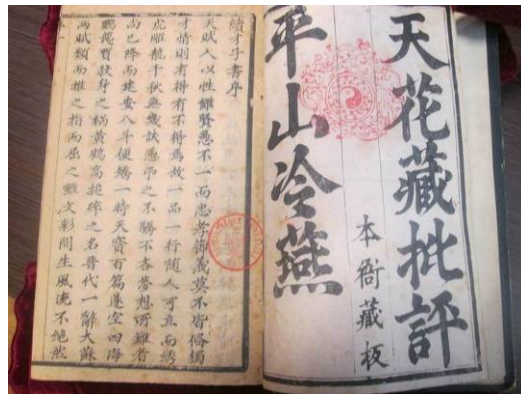 天花藏批評
本衙藏板
平山冷燕
續才子書序
天賦人以性雖賢愚不一而忠孝節義莫不皆備獨
才情則有得有不得焉故一品一行隨人可立而繡
虎雕龍千秋無幾試之不驕不吝夢想所難者
尚已降而建安八斗便矯一時天寶百篇遂空四海
鸚鵡賈殺身之禍黃鶴高搥碎之名晉代一辭大蘇
兩賦類而推之指而屈之雖文彩間生風流不絕然